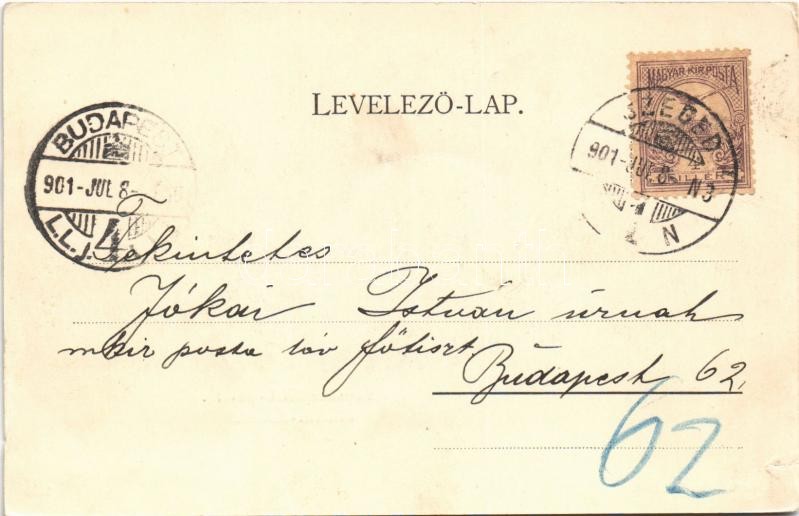 LEVELEZŐ-LAP.
MAGYAR KIR. POSTA
SZEGED
901-JUL 8- N3
BUDAPEST
901-JUL 8-
4
Tekintetes
Jókai István úrnak
mkir posta táv főtiszt
Budapest 62.
62